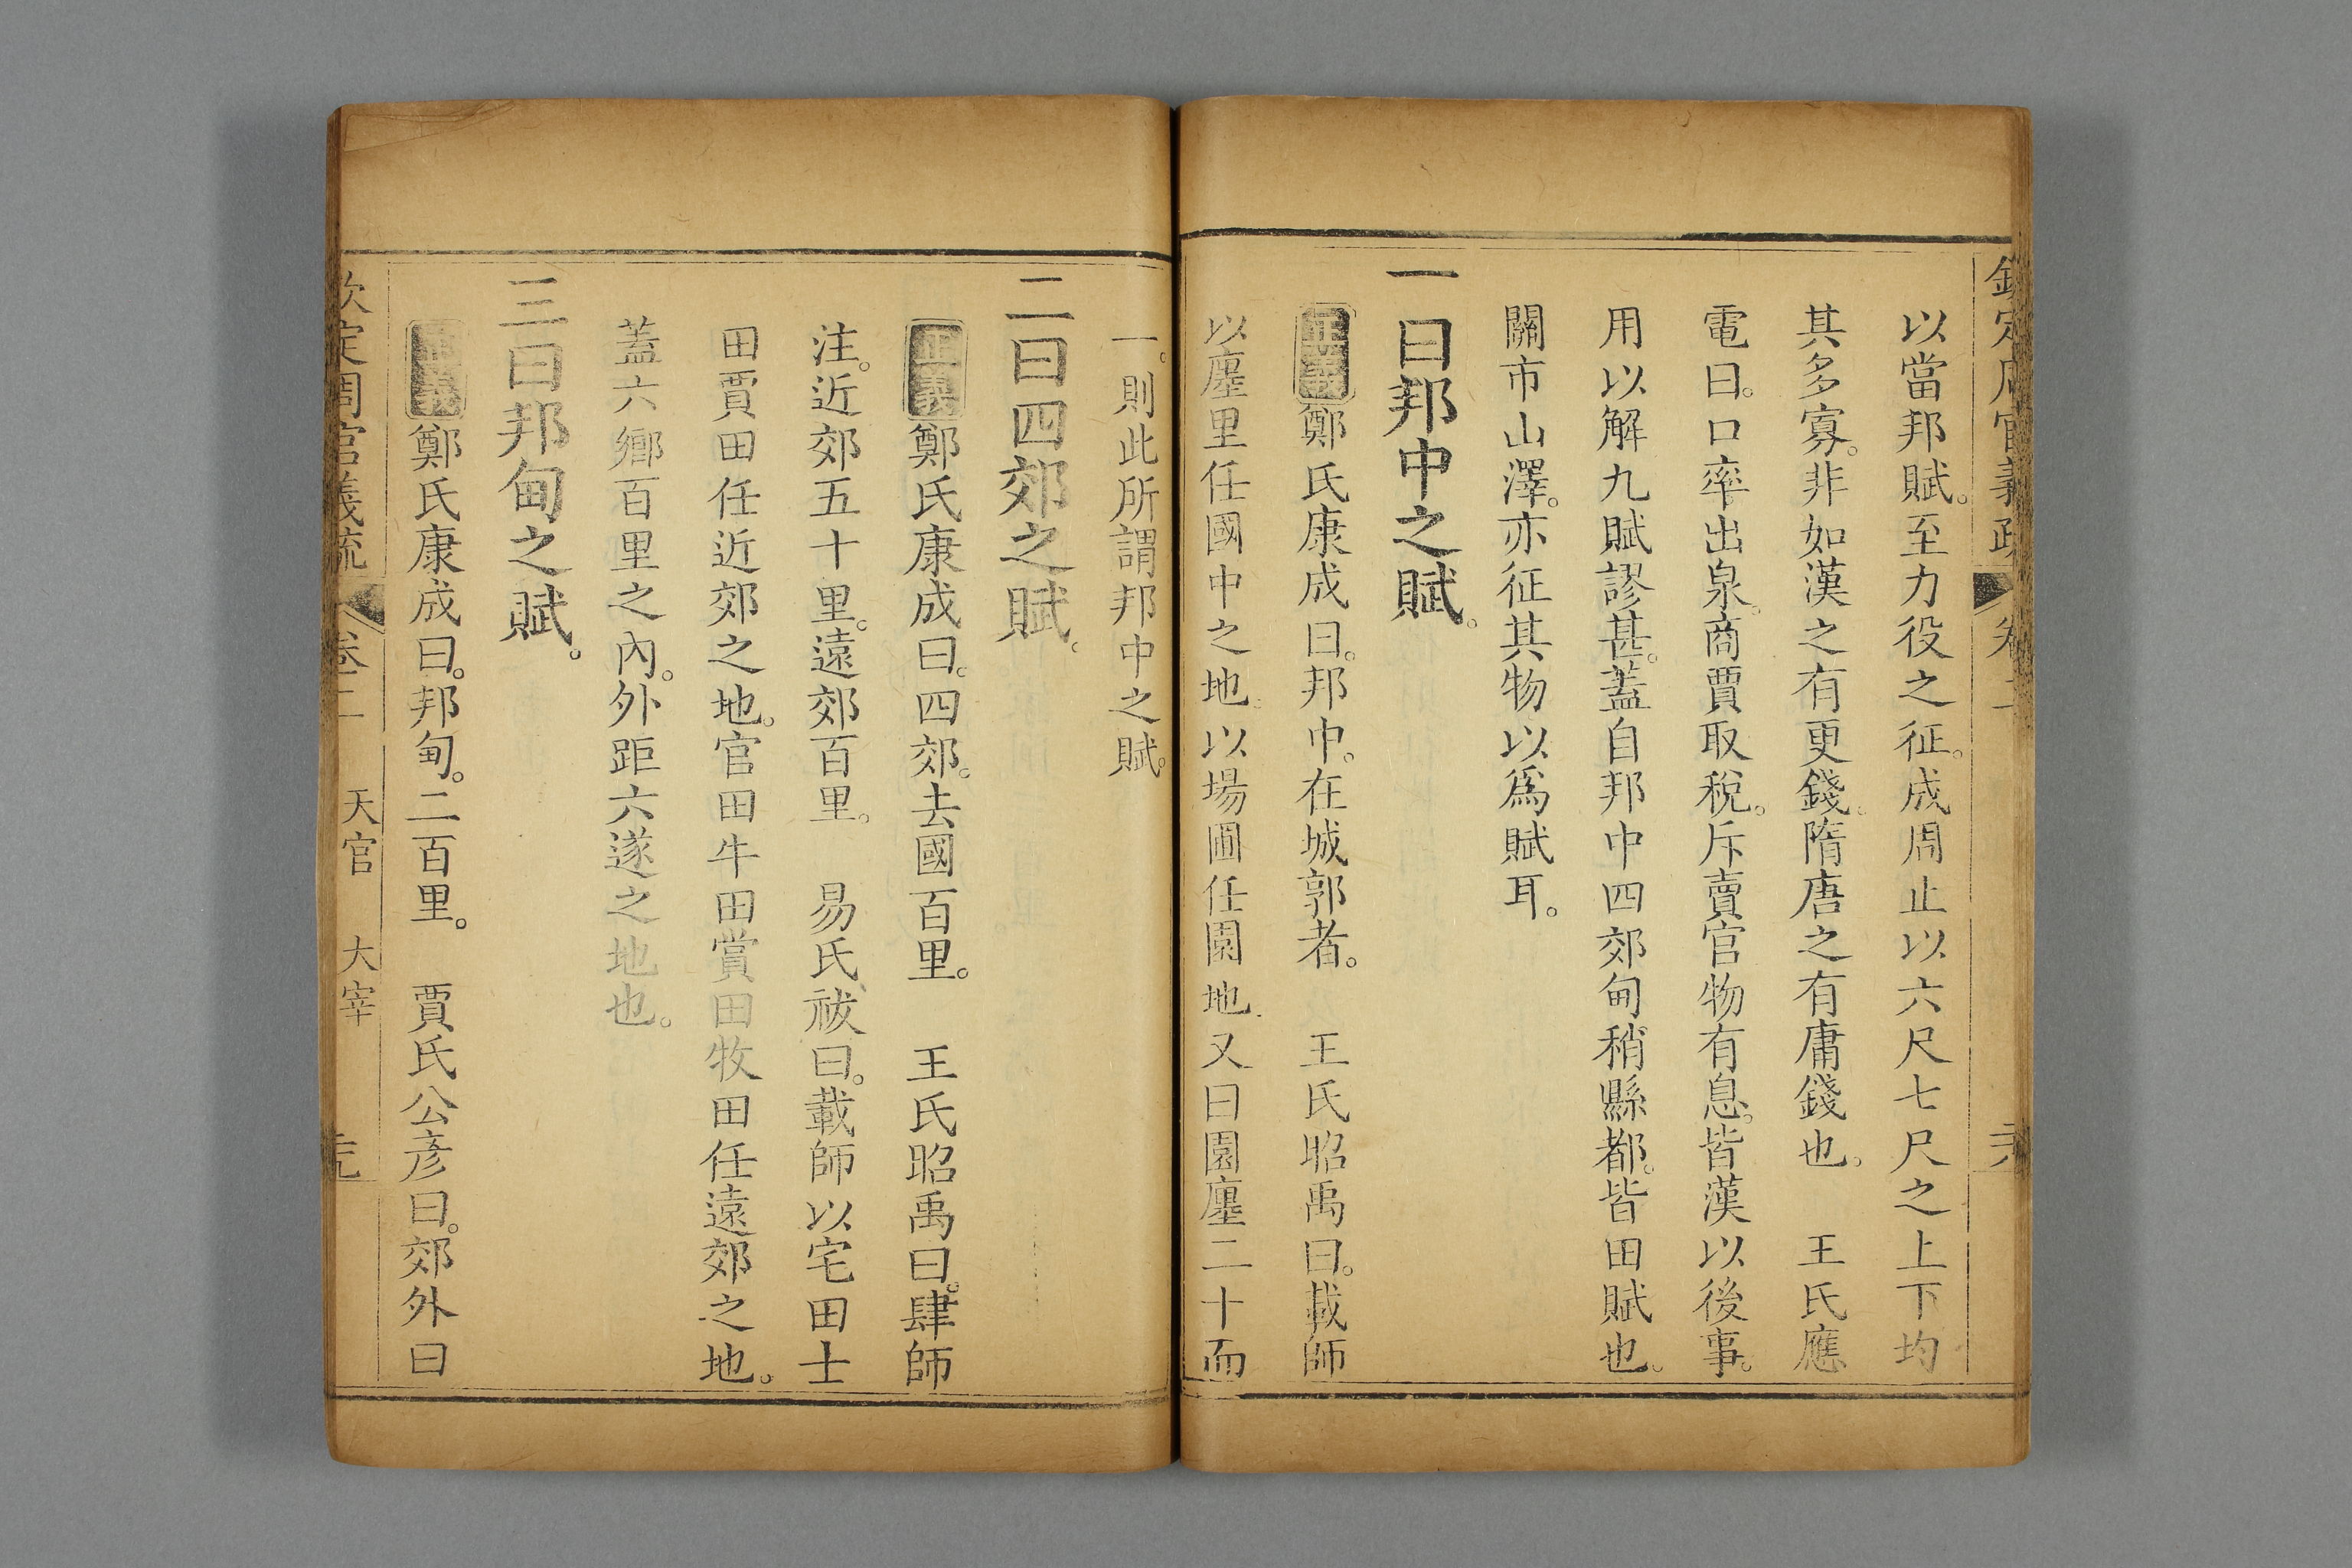 欽定周官義疏 卷二
以當邦賦。至力役之征。成周止以六尺七尺之上下均
其多寡。非如漢之有更錢。隋唐之有庸錢也。　王氏應
電曰。口率出泉。商賈取稅。斥賣官物有息。皆漢以後事。
用以解九賦謬甚。蓋自邦中四郊甸稍縣都。皆田賦也。
關市山澤。亦征其物以爲賦耳。
一曰邦中之賦。
正義鄭氏康成曰。邦中。在城郭者。　王氏昭禹曰。載師
以廛里任國中之地。以場圃任園地。又曰園廛二十而
一。則此所謂邦中之賦。
二曰四郊之賦。
正義鄭氏康成曰。四郊。去國百里。　王氏昭禹曰。肆師
注。近郊五十里。遠郊百里。　易氏祓曰。載師以宅田士
田賈田任近郊之地。官田牛田賞田牧田任遠郊之地。
蓋六鄉百里之內。外距六遂之地也。
三曰邦甸之賦。
正義鄭氏康成曰。邦甸。二百里。　賈氏公彥曰。郊外曰
欽定周官義疏 卷二 天官 大宰